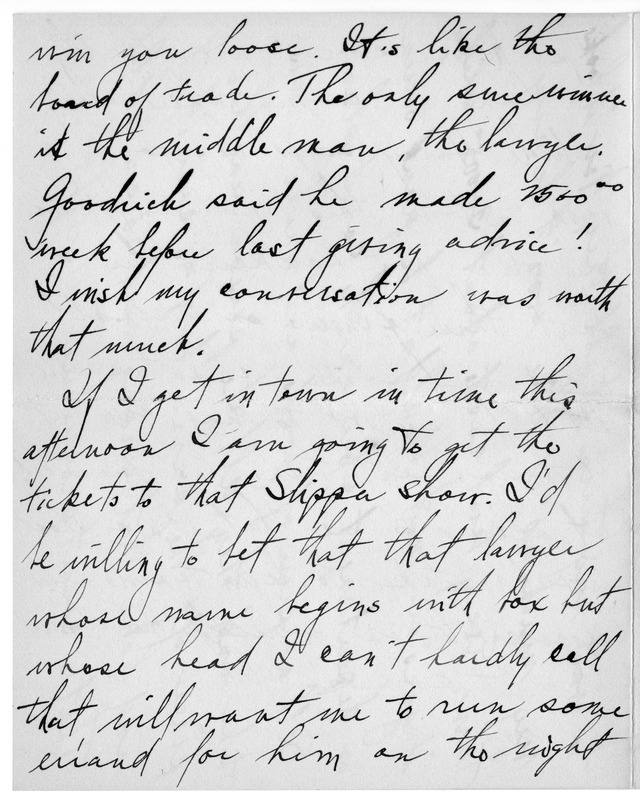 win you loose. It's like the
board of trade. The only sure winner
is the middle man, the lawyer.
Goodrich said he made 2500⁰⁰
week before last giving advice!
I wish my conversation was worth
that much.
If I get in town in time this
afternoon I am going to get the
tickets to that Slipper show. I'd
be willing to bet that that lawyer
whose name begins with box but
whose head I can't hardly call
that will want me to run some
errand for him on the night